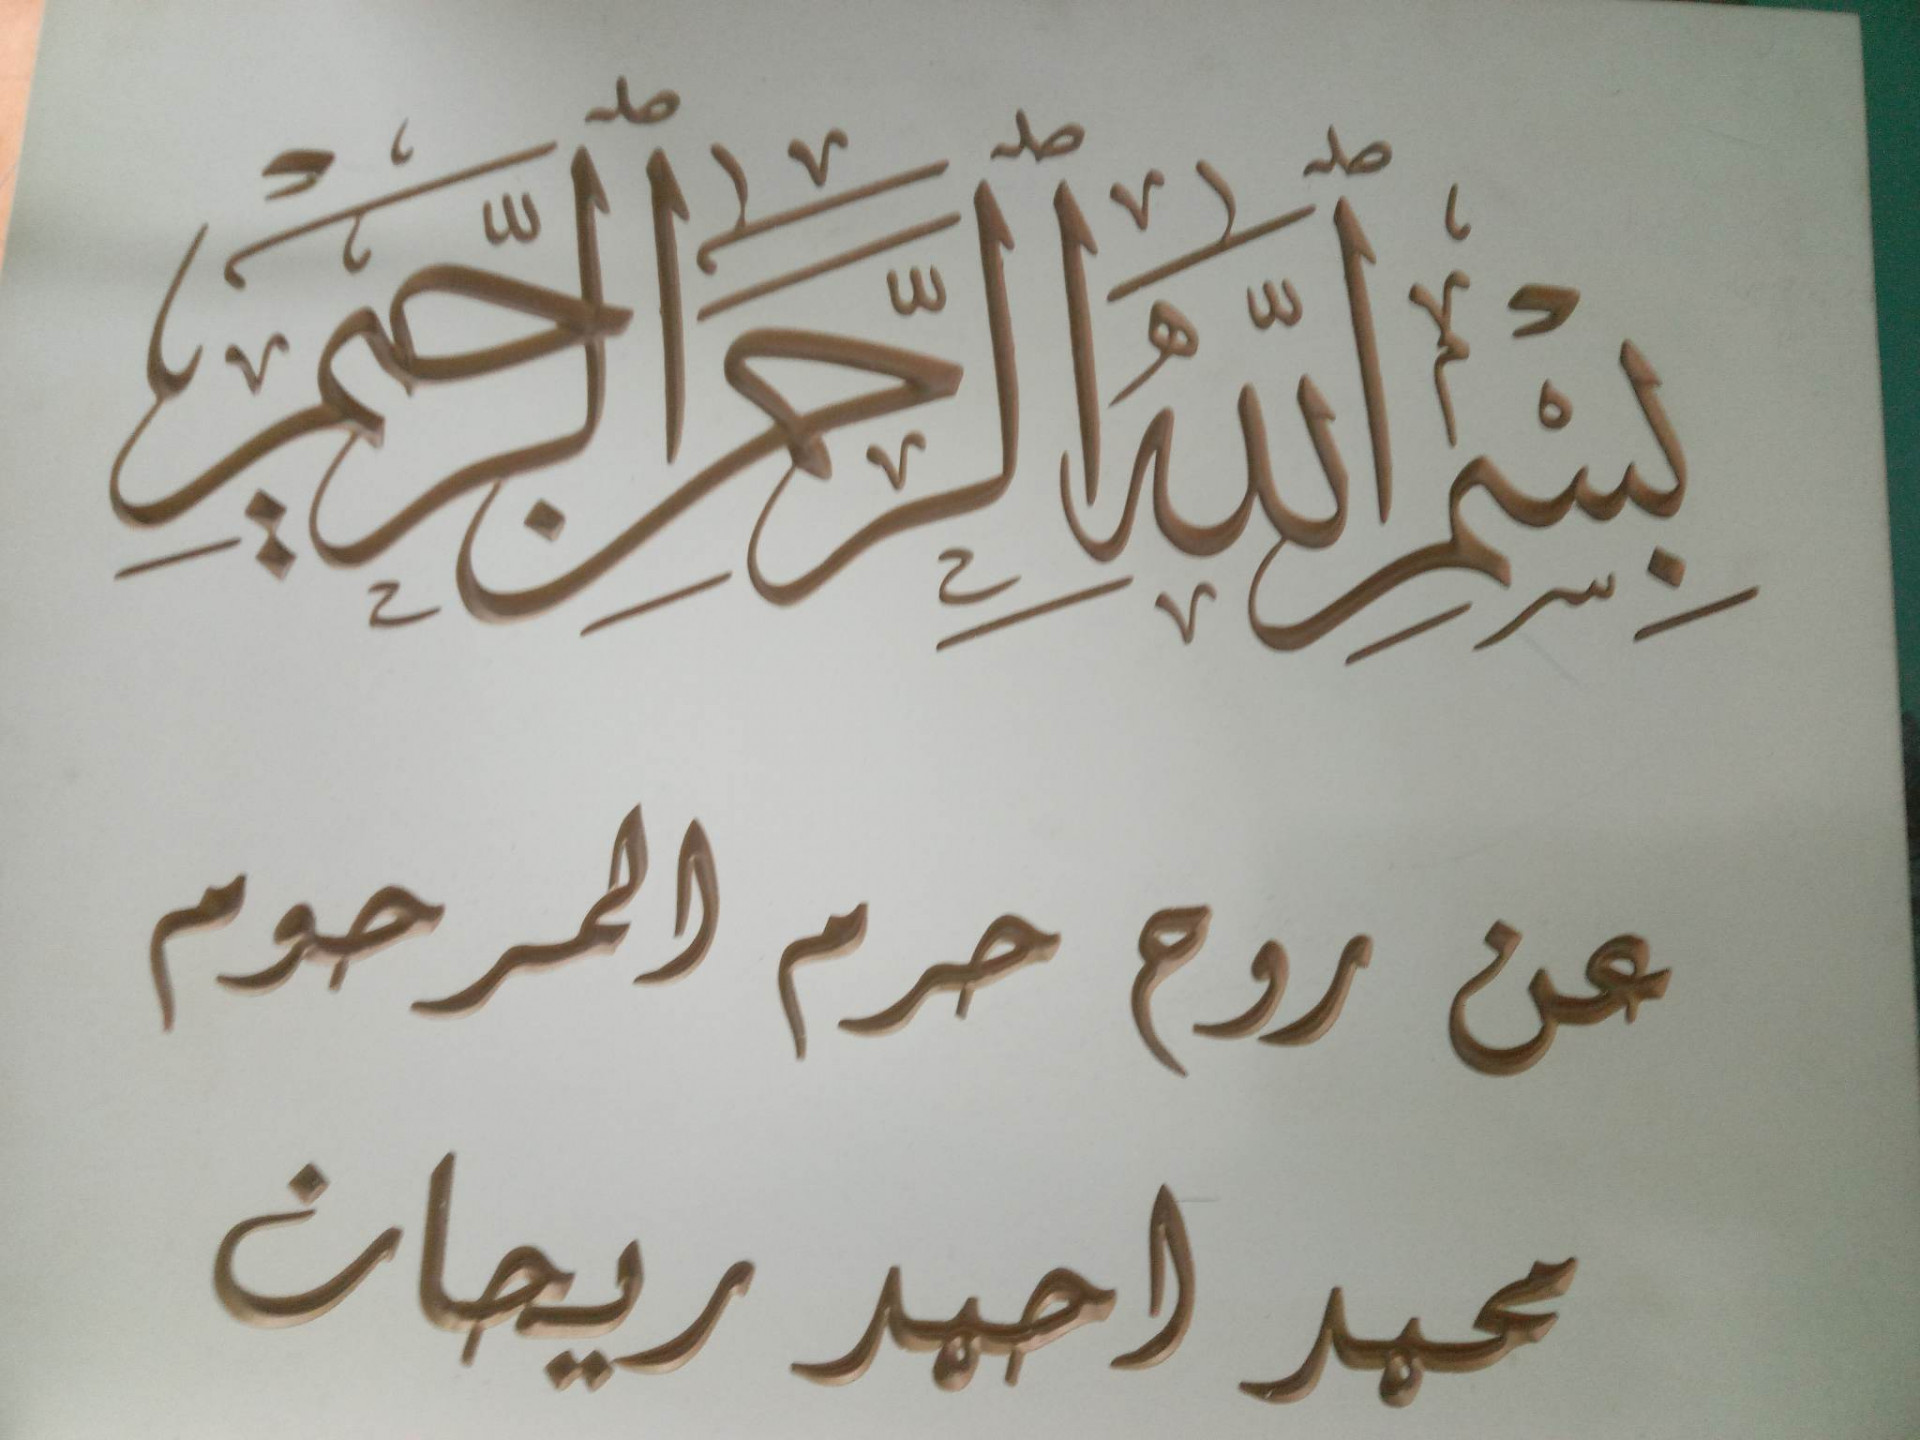 بِسْمِ ٱللَّهِ ٱلرَّحْمَٰنِ ٱلرَّحِيمِ
عن روح حرم المرحوم
محمد احمد ريحان